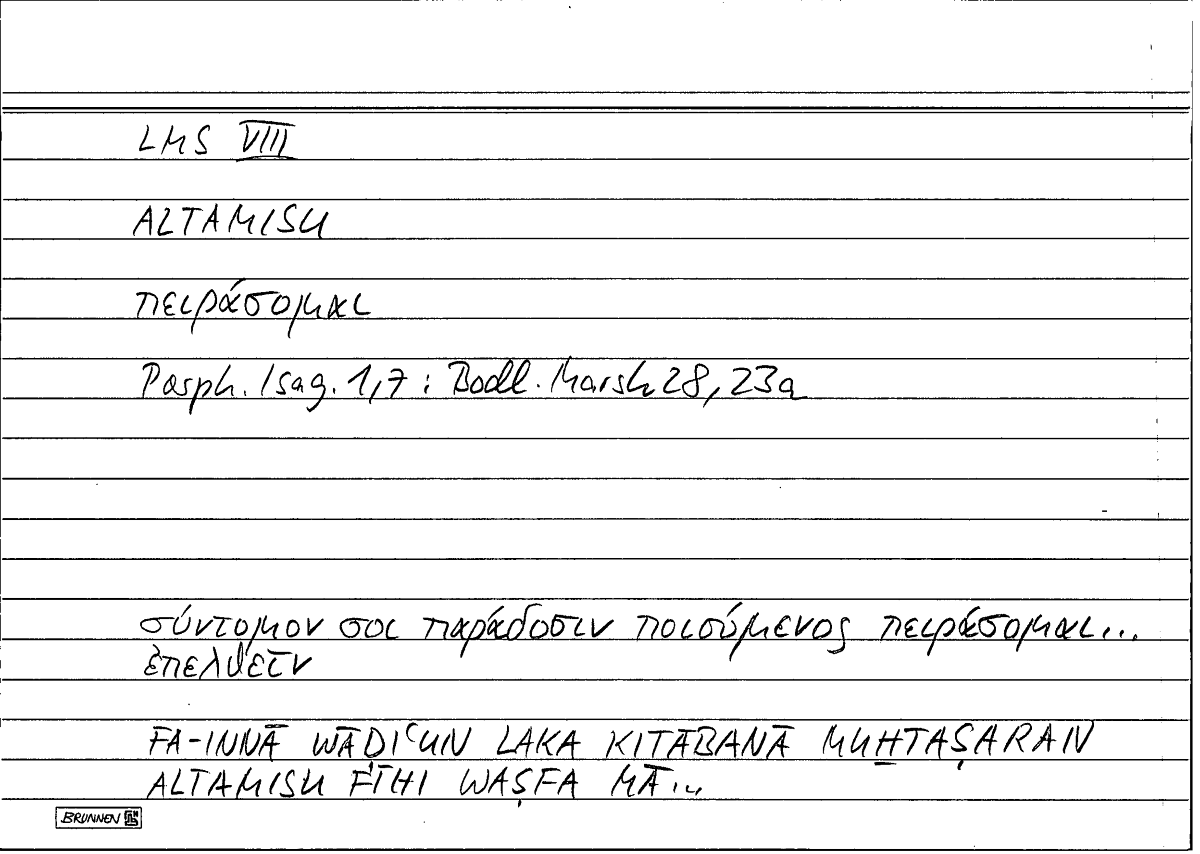 LMS VIII
ALTAMISU
πειράσομαι
Porph. Isag. 1,7 : Bodl. Marsh 28, 23a
σύντομον σοι παράδοσιν ποιούμενος πειράσομαι...
ἐπελθεῖν
FA-INNĀ WĀḌIʿUN LAKA KITĀBANĀ MUH̱TAṢARAN
ALTAMISU FĪHI WAṢFA MĀ...
BRUNNEN